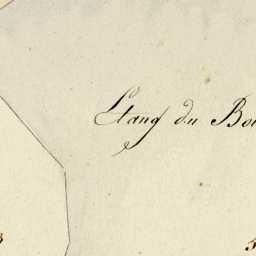 L'Etang du Bo